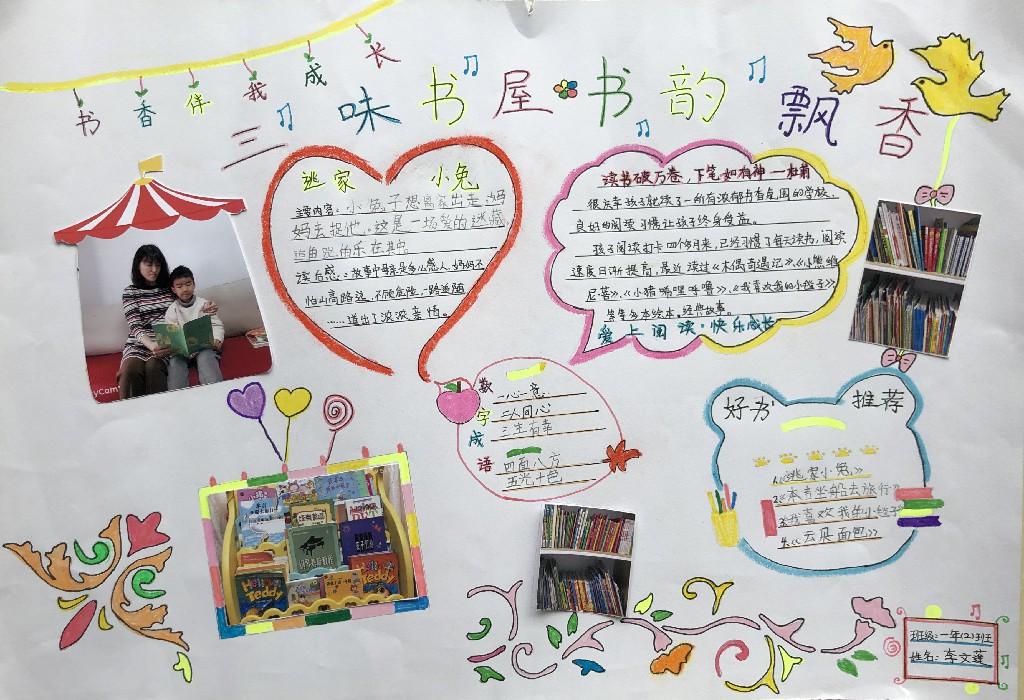 书香伴我成长
三味书屋·书韵飘香
逃家 小兔
读内容:小兔子想离家出走,妈
妈去捉他。这是一场爱的迷藏,
乐在其中。
读后感:故事中母亲是多么感人,妈妈不
怕山高路远,不顾危险,一路追随
……道出了浓浓亲情。
读书破万卷,下笔如有神—杜甫
很庆幸孩子就读了一所有浓郁书香氛围的学校,
良好的阅读习惯让孩子终身受益。
孩子阅读打卡四个多月来,已经习惯了每天读书,阅读
速度日渐提高,最近读过《木偶奇遇记》、《小熊维
尼菩》、《小猪唏哩呼噜》、《我喜欢我的小毯子》
等等多本绘本。经典故事。
爱上阅读·快乐成长
数字成语
一心一意
二人同心
三生有幸
四面八方
五光十色
好书 推荐
1.《逃家小兔》
2.《本有坐船去旅行》
3.《我喜欢我的小毯子》
4.《去展面包》
Hello Teddy
Hello Teddy
班级:一年(2)班
姓名:李文莲